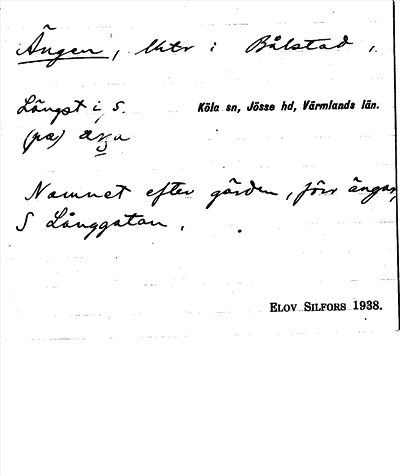 Ängen, lktr i Bålstad,
Längst i S. Köla sn, Jösse hd, Värmlands län.
(på)
Namnet efter gården, förr ängar,
S Långgatan.
ELOV SILFORS 1938.